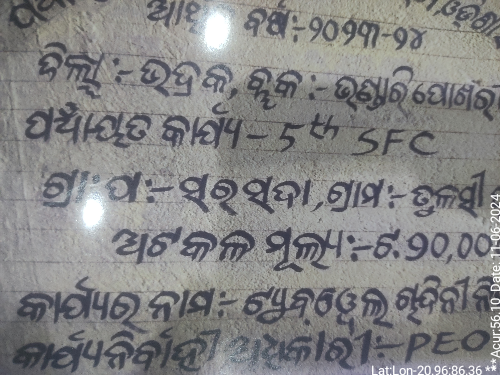 ଆର୍ଥି ବର୍ଷ:-୨୦୨୩-୨୪
ଜିଲ୍ଲା:- ଭଦ୍ରକ, ବ୍ଲକ:- ଭଣ୍ଡାରିପୋଖରୀ
ପଞ୍ଚାୟତ କାର୍ଯ୍ୟ - 5th SFC
ଗ୍ରା:ପ:- ସରସଦା, ଗ୍ରାମ:- ତୁଳସୀ
ଅଟକଳ ମୂଲ୍ୟ:-ଟ.୨୦,୦୦
କାର୍ଯ୍ୟର ନାମ:- ଟ୍ୟୁବୱେଲ
କାର୍ଯ୍ୟନିର୍ବାହୀ ଅଧିକାରୀ:- PEO
Lat:Lon-20.96:86.36 ** Acur:56.10 Date: 11-06-2024 **